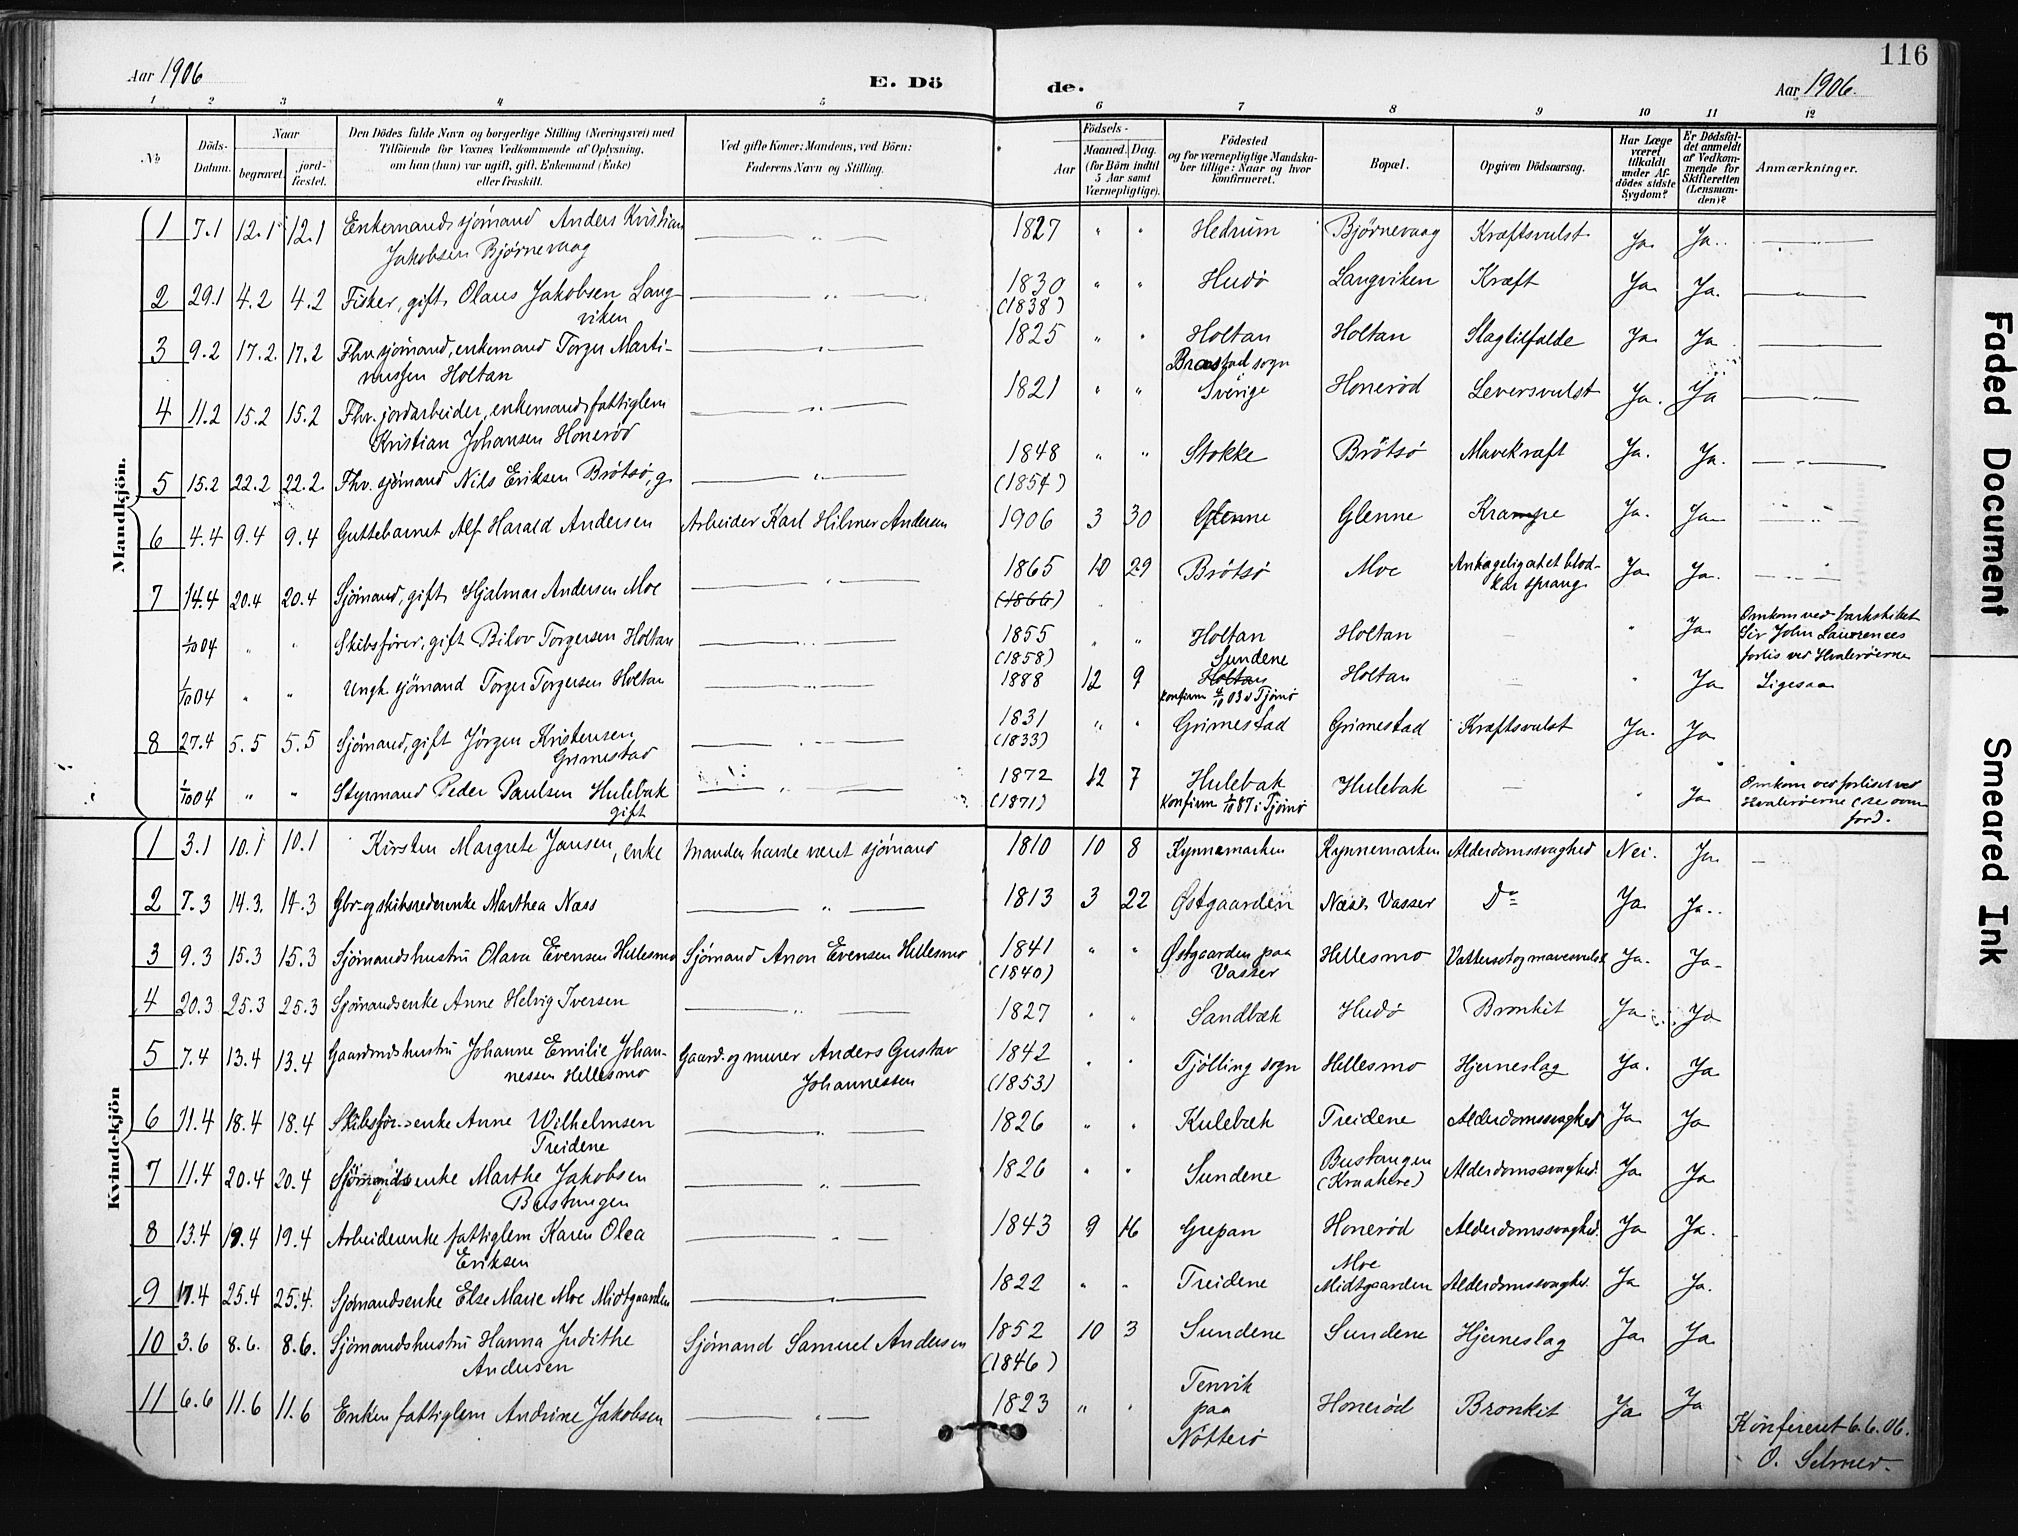 116
Aar 1906
E. Dö
de.
Aar 1906.
1 2 3 4 5 6 7 8 9 10 11 12
No
Döds-Datum.
Naar
begravet.
jord-fæstet.
Den Dödes fulde Navn og borgerlige Stilling (Næringsvei) med
Tilföiende for Voxnes Vedkommende af Oplysning,
om han (hun) var ugift, gift, Enkemand (Enke)
eller fraskilt.
Ved gifte Koner: Mandens, ved Börn:
Faderens Navn og Stilling.
Födsels-
Aar
Maaned. Dag.
(for Börn indtil
5 Aar samt
Værnepligtige).
Födested
og for værnepligtige Mandska-
ber tillige: Naar og hvor
konfirmeret.
Bopæl.
Opgiven Dödsaarsag.
Har Læge
været
tilkaldt
under Af-
dödes sidste
Sygdom?
Er Dödsfal-
det anmeldt
af Vedkom-
mende for
Skifteretten
(Lensman-
den)?
Anmærkninger.
Mandkjön.
1 7.1 12.1 12.1 Enkemand, sjømand Anders Kristian 1827 " " Hedrum Bjørnevaag Kræftsvulst Ja Ja
Jakobsen Bjørnevaag
2 29.1 4.2 4.2 Fisker, gift, Olaus Jakobsen Lang- 1830 " " Hudø Langviken Kræft Ja Ja.
viken (1838)
3 9.2 17.2. 17.2 Fhv. sjømand, enkemand Torger Marti- 1825 " " Holtan Holtan Slagtilfælde Ja Ja
nussen Holtan
4 11.2 15.2 15.2 Fhv. jordarbeider, enkemand, fattiglem 1821 " " Brastad sogn Sverige Honerød Leversvulst Ja. Ja
Kristian Johansen Honerød
5 15.2 22.2 22.2. Fhv. sjømand Nils Eriksen Brötsö, g. 1848 " " Stokke Brötsö Mavekræft Ja. Ja.
(1854)
6 4.4 9.4 9.4 Guttebarnet Alf Harald Andersen Arbeider Karl Hilmer Andersen 1906 3 30 Glenne Glenne Krampe Ja. Ja
7 14.4 20.4 20.4 Sjømand, gift, Hjalmar Andersen Moe 1865 10 29 Brötsö Moe Ja Ja.
kar sprang
(1866)
1/10 04 " " Skibsfører, gift Bilov Torgersen Holtan 1855 " " Holtan Holtan " Ja Omkom ved barkskibet
(1858) Sir John Lawrences
forlis ved Hvalerøerne
1/10 04 " " Ungk. sjømand Torger Torgersen Holtan 1888 12 9 Sundene Holtan Holtan Ja Ligesaa
konfirm 4/10 03 i Tjømø
8 27.4 5.5 5.5 Sjømand, gift Jörgen Kristensen 1831 " " Grimestad Grimestad Kræftsvulst Ja. Ja
Grimestad (1833)
1/10 04 " " Styrmand Peder Paulsen Hulebak 1872 12 7 Hulebak Hulebak " Ja Omkom ved forliset ved
gift (1871) Konfirm 1/10 87 i Tjømø Hvalerøerne (se oven
for).
Kvindekjön
1 3.1 10.1 10.1 Kirsten Margrete Jansen, enke Manden havde været sjømand 1810 10 8 Kynnemarken Kynnemarken Alderdomssvaghed Nei. Ja
2 7.3 14.3. 14.3 Gbr- og skibsrederenke Marthea Næss 1813 3 22 Østgaarden Næss, Vasser Do Ja Ja.
3 9.3 15.3 15.3 Sjømandshustru Olava Evensen Hellesmo Sjømand Anon Evensen Hellesmo 1841 " " Østgaarden paa Hellesmo Vattersot og mavesvulst Ja. Ja
(1840) Vasser
4 20.3 25.3 25.3 Sjømandsenke Anne Helvig Iversen 1827 " " Sandbæk Hudø Bronkit Ja Ja
5 7.4 13.4 13.4 Gaardmdshustru Johanne Emilie Johan- Gaard- og murer Anders Gustav 1842 " " Tjölling sogn Hellesmo Hjerneslag Ja. Ja
nessen Hellesmo Johannessen (1853)
6 11.4 18.4 18.4 Skibsför.-enke Anne Wilhelmsen 1826 " " Kulebæk Treidene Alderdomssvaghed Ja Ja
Treidene
7 11.4 20.4 20.4 Sjømandsenke Marthe Jakobsen 1826 " " Sundene Bustangen Alderdomssvaghed. Ja Ja
Bustangen (Kraakere)
8 13.4 19.4 19.4 Arbeiderenke fattiglem Karen Olea 1843 9 16 Grepan Honerød Alderdomssvaghed. Ja Ja.
Eriksen
9 17.4 25.4 25.4. Sjømandsenke Else Marie Moe Midtgaarden 1822 " " Treidene Moe Midtgaarden Alderdomssvaghed. Ja Ja.
10 3.6 8.6. 8.6. Sjømandshustru Hanna Judithe Sjømand Samuel Andersen 1852 10 3 Sundene Sundene Hjerneslag Ja Ja
Andersen (1846)
11 6.6 11.6 11.6 Enken fattiglem Andrine Jakobsen 1823 " " Tenvik paa Nötterö Honerød Bronkit Ja Ja
Konfereret 6.6.06.
O. Selmer.
Faded Document
Smeared Ink